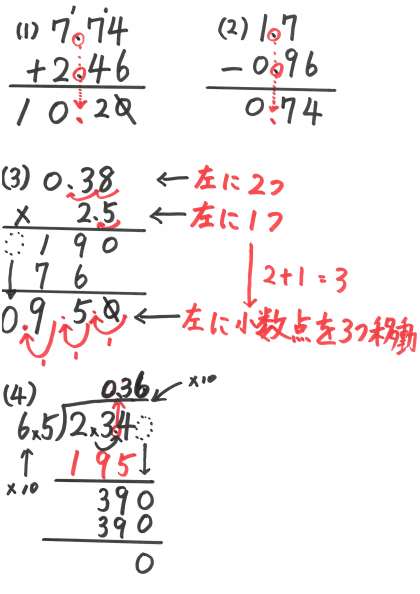 (1) 7.74
+2.46
10.20
(2) 1.7
-0.96
0.74
(3) 0.38 ← 左に2つ
× 2.5 ← 左に1つ
190
76
2+1=3
0.950 ← 左に小数点を3つ移動
1 1 1
(4) 0.36 ×10
6.5)2.34
×10
195
390
390
0